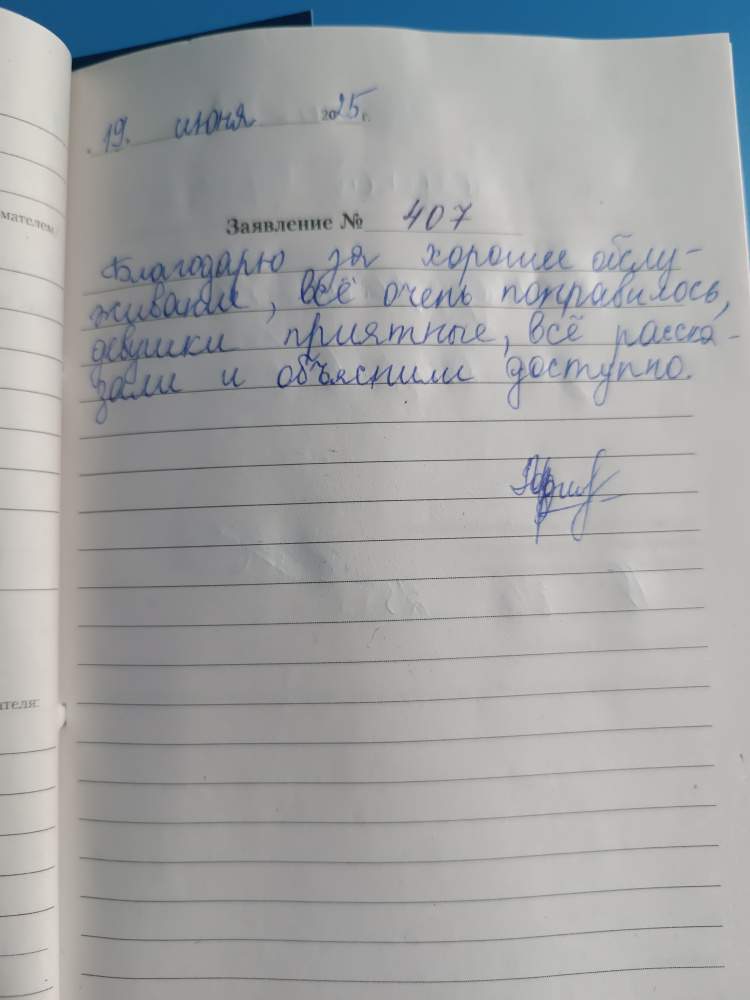 19. июня 2025 г.
Заявление № 407
мателем
Благодарю за хорошее обслу-
живание, всё очень понравилось,
девушки приятные, всё расска-
зали и объяснили доступно.
ателя: